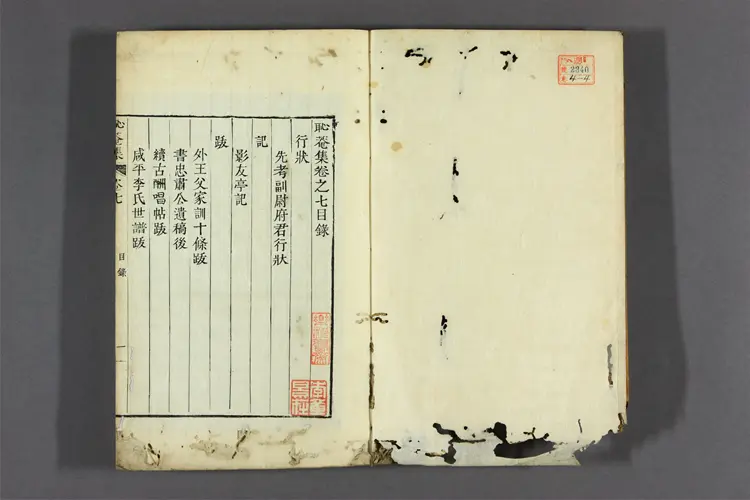 恥菴集卷之七目錄
行狀
先考副尉府君行狀
記
影友亭記
跋
外王父家訓十條跋
書忠肅公遺稿後
續古酬唱帖跋
咸平李氏世譜跋
恥菴集 卷七 目錄 一
2340
4-4